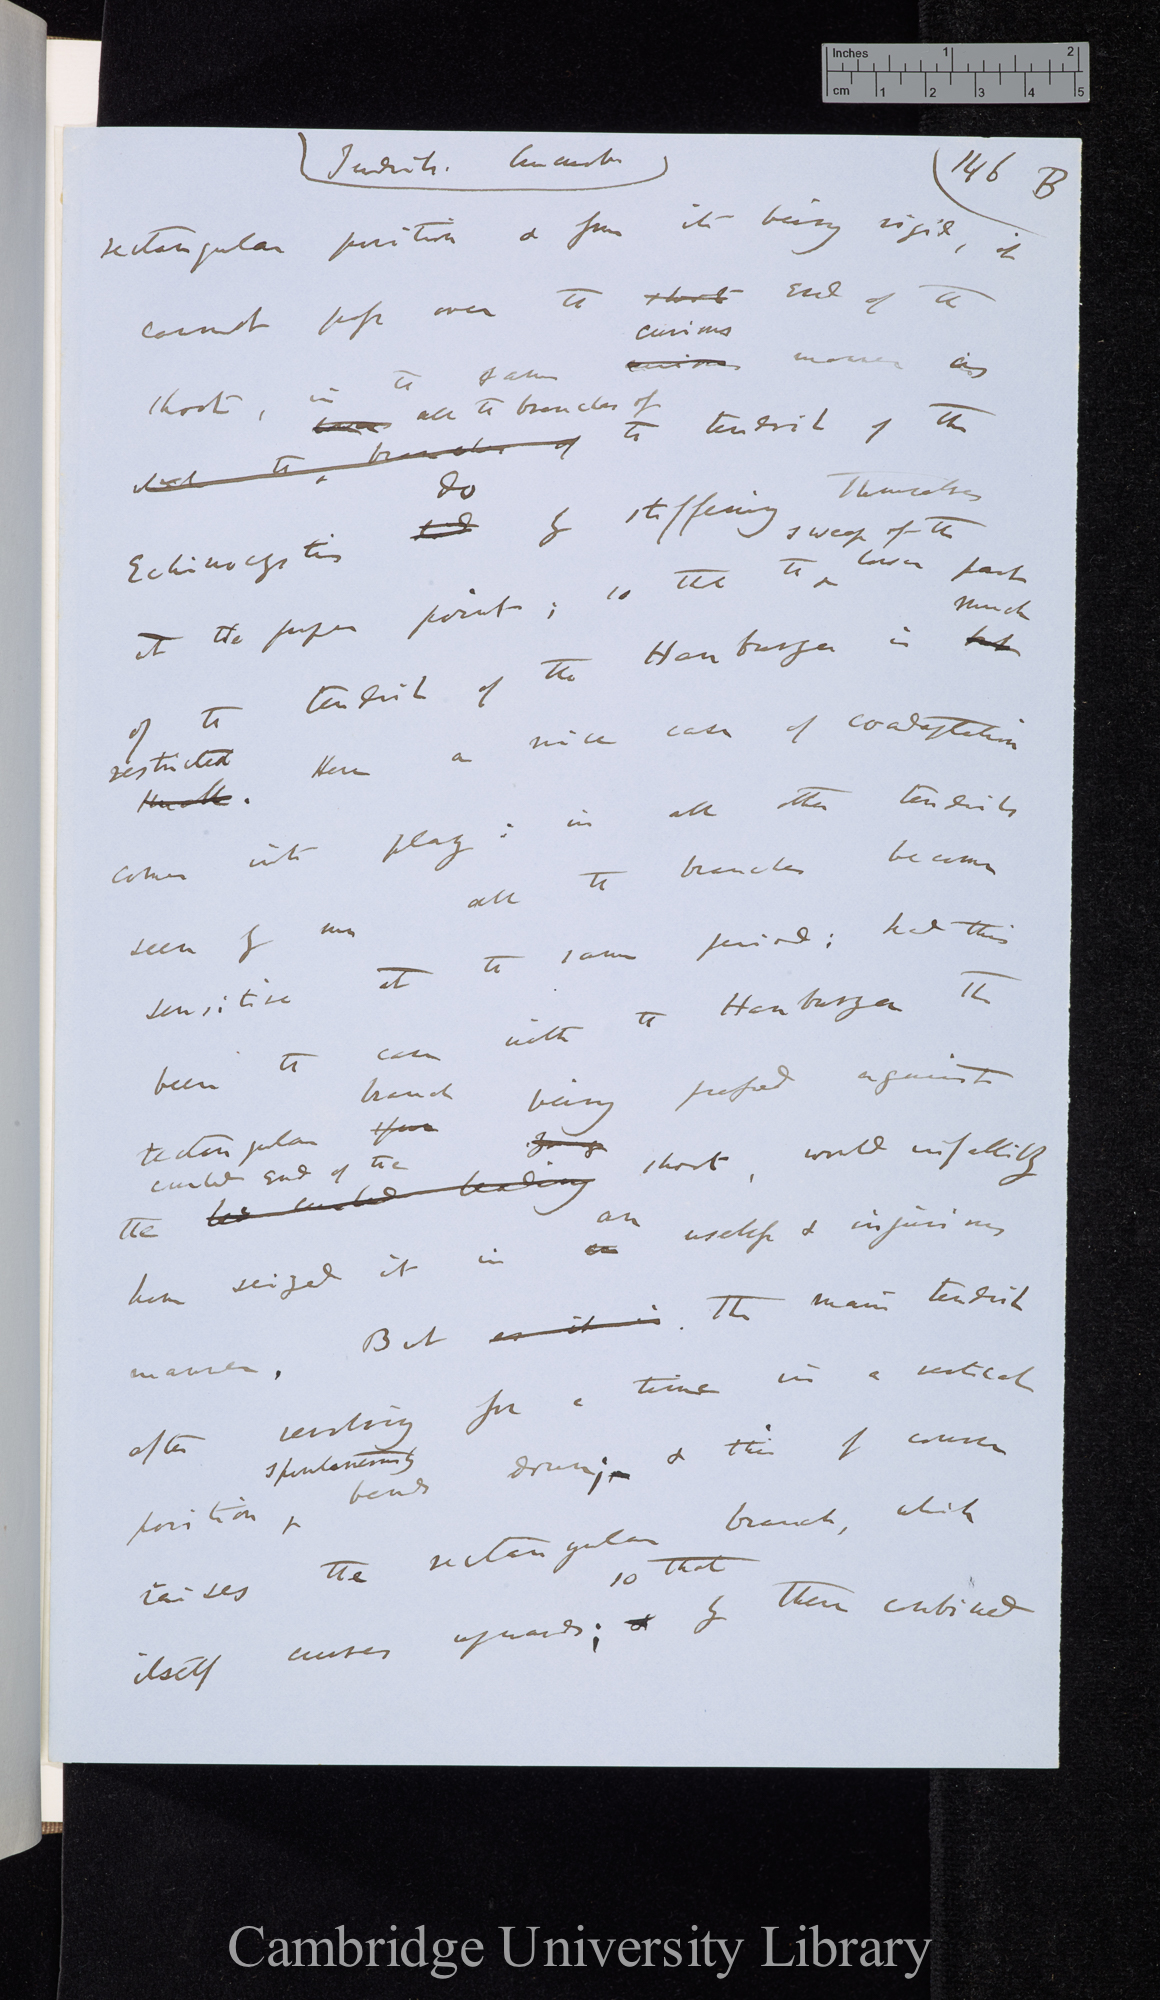 Inches 1 2
cm 1 2 3 4 5
Tendrils.
146 B
rectangular position & from its being rigid, it
cannot pass over the short end of the
curious
shoot, in the same curious manner as
have all the branches of
which the branches of the tendril of the
do
Echinocystis and by stiffening themselves
sweep of the
at the proper point; so that the lower part
much
of the tendril of the Hanburya is
restricted
Small. Here a nice case of coadaptation
comes into play; in all other tendrils
seen by me all the branches become
sensitive at the same period; had this
been the case with the Hanburya the
branch being pressed against
rectangular
curled end of the
the shoot, would infallibly
an
have seized it in a useless & injurious
manner. But as it is the main tendril
after revolving for a time in a vertical
spontaneously
position, bends down; & this of course
raises the rectangular branch, which
so that
itself curves upwards; & by these combined
Cambridge University Library